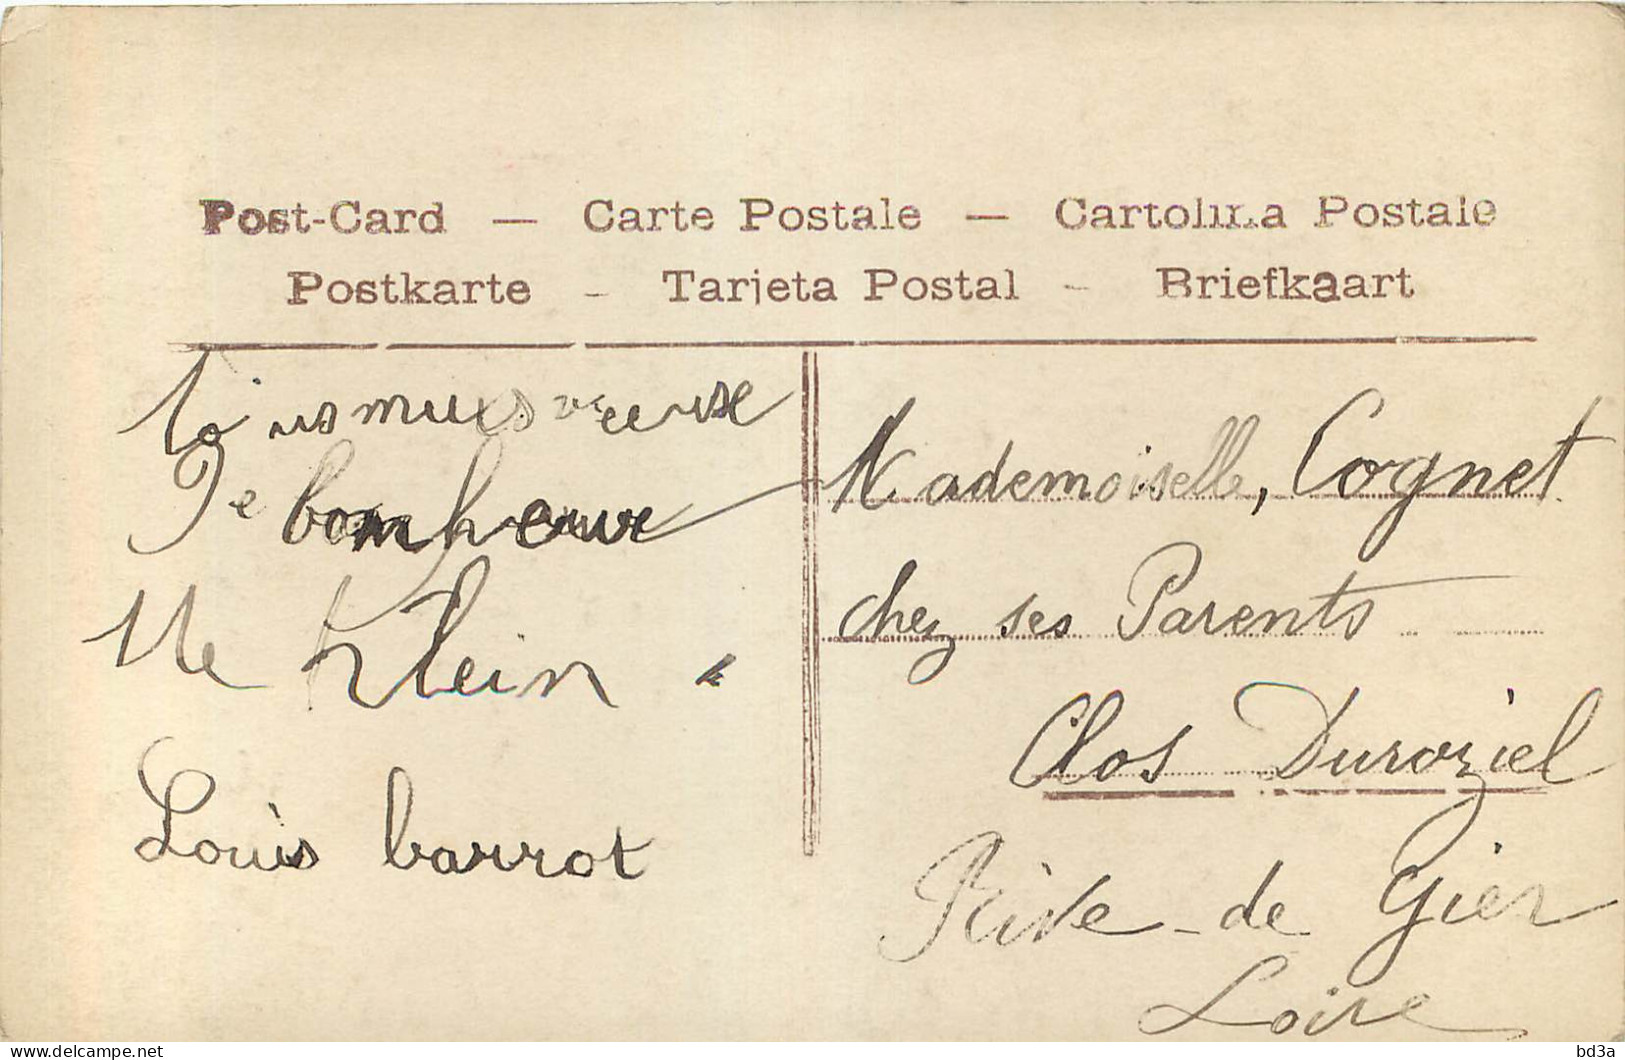 Post-Card — Carte Postale — Cartolina Postale
Postkarte - Tarjeta Postal - Briefkaart
Je bonheur
Klein
Louis barrot
Mademoiselle, Cognet
chez ses Parents
Clos Duroziel
Rive-de Gier
Loire
delcampe.net
bd3a